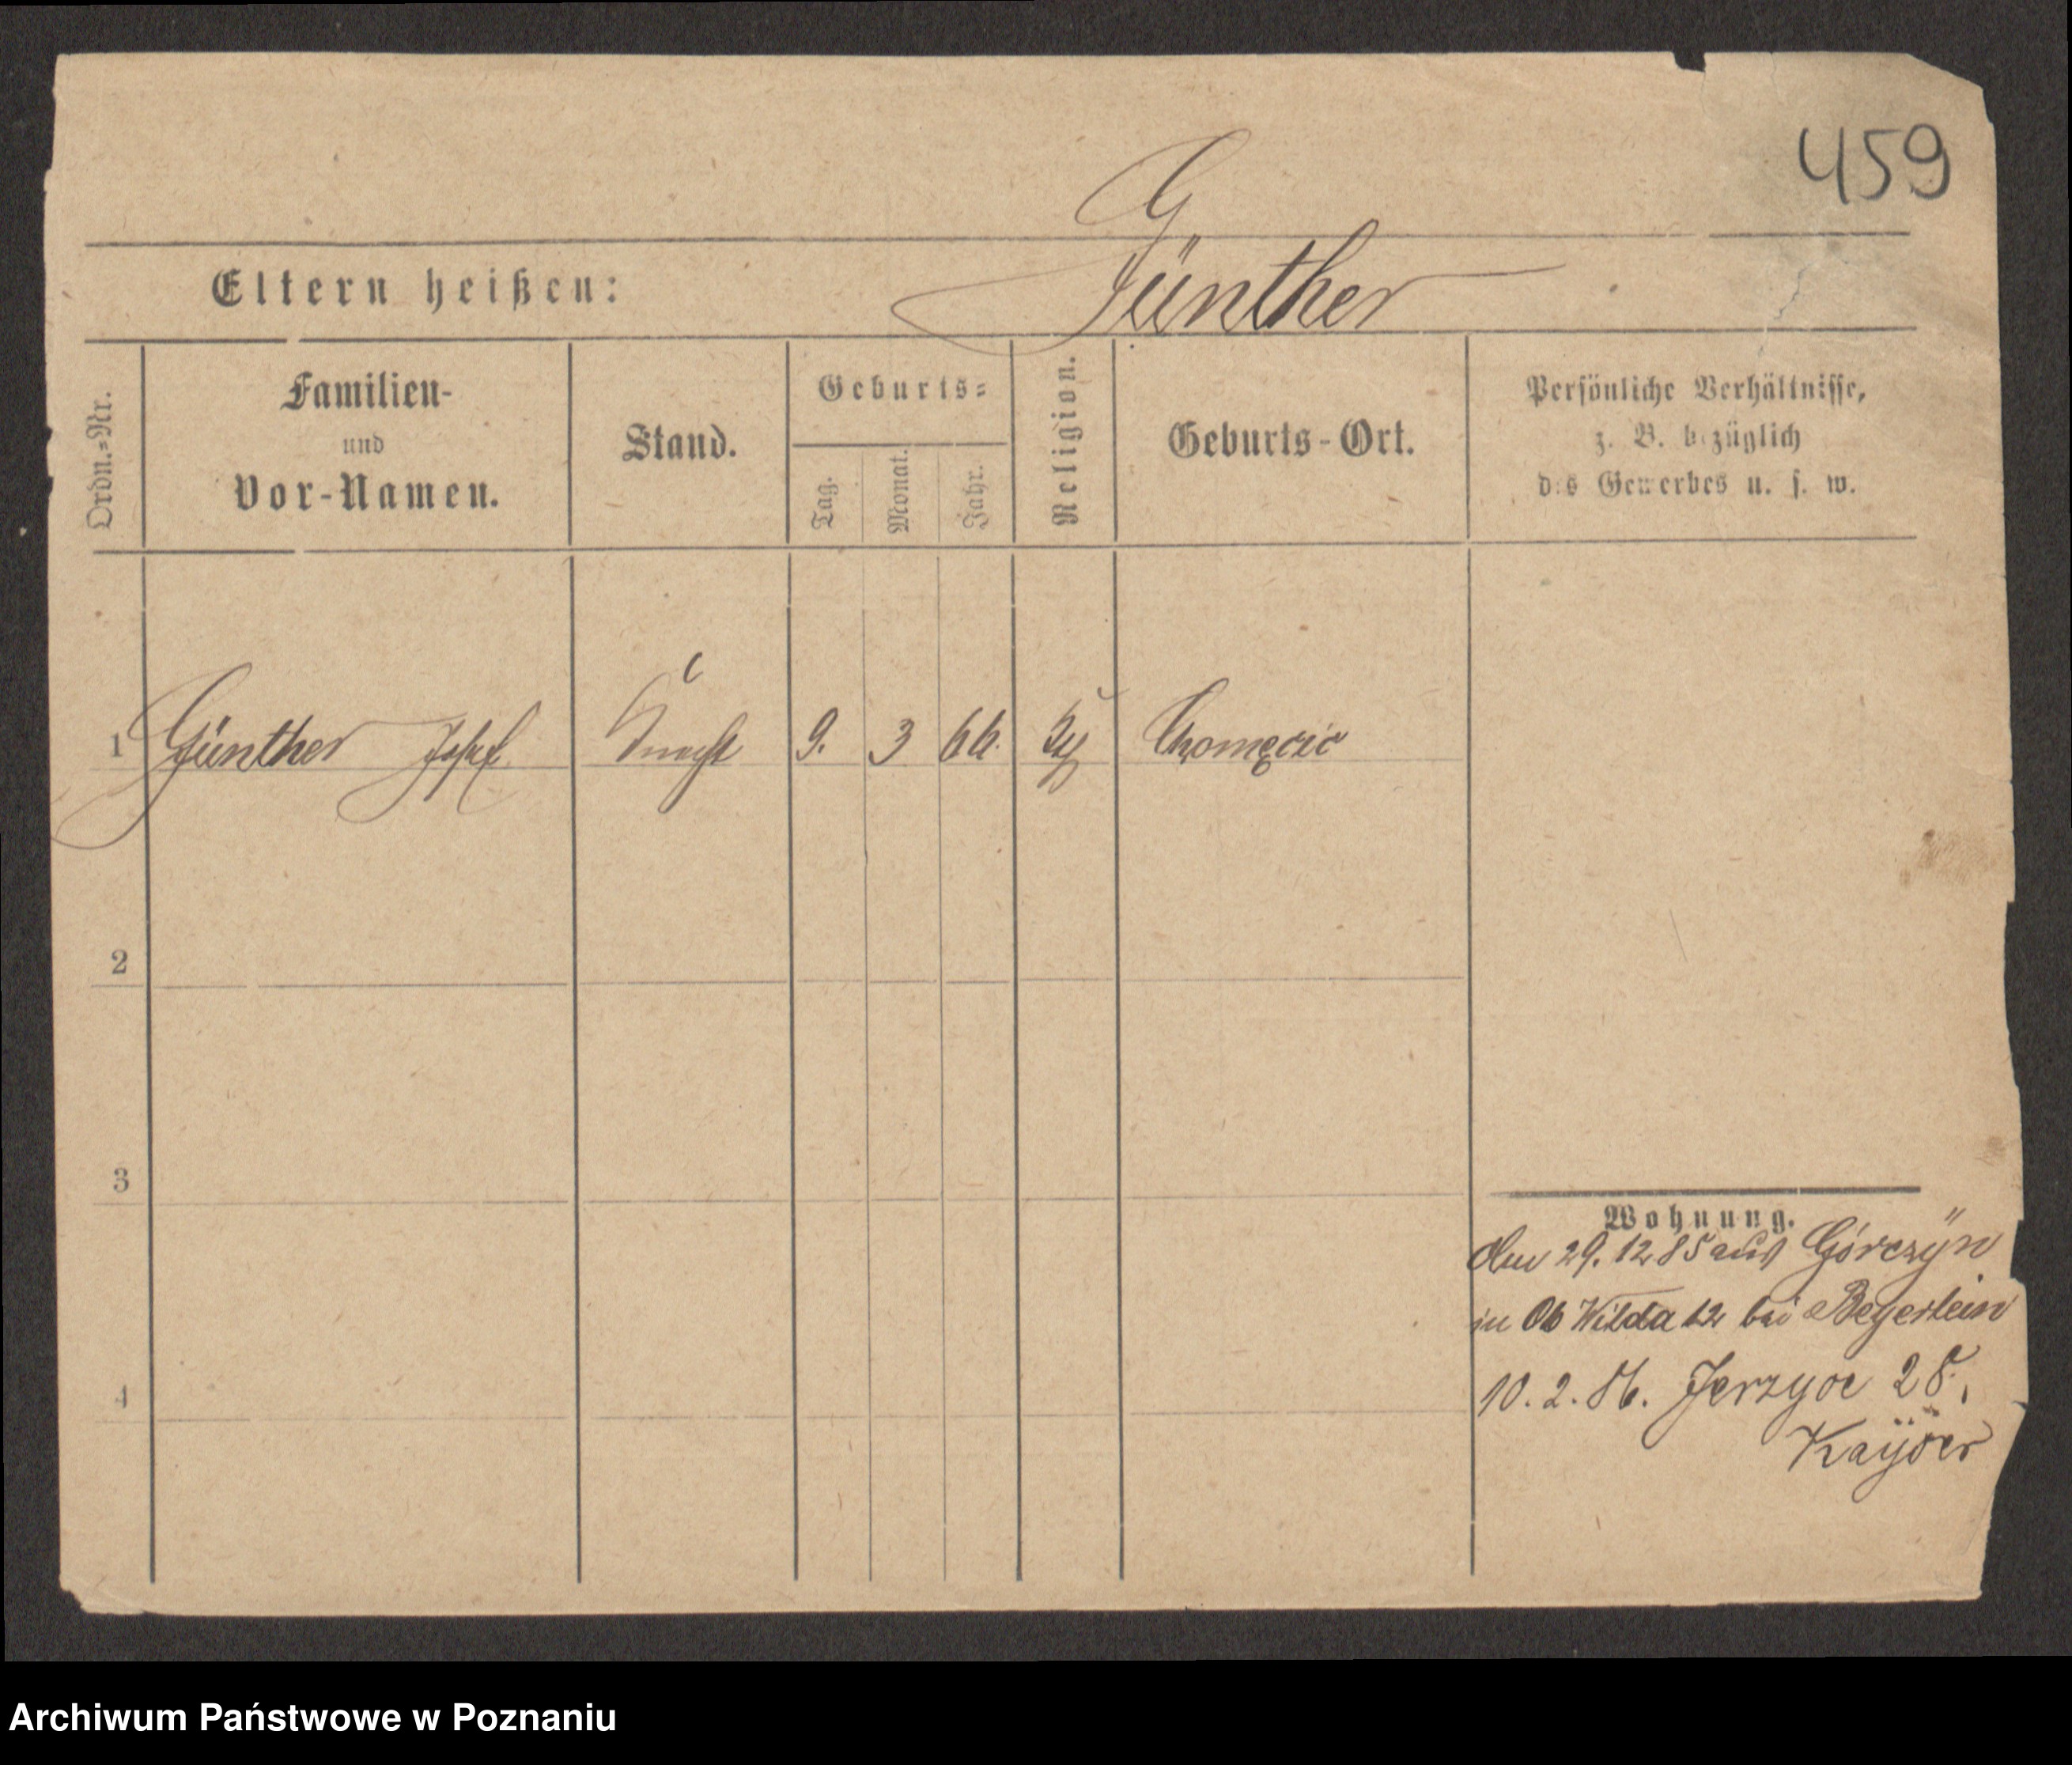 459
Günther
Eltern heißen:
Ordn.=Nr.
Familien-
und
Vor-Namen.
Stand.
Geburts=
Tag.
Monat.
Jahr.
Religion.
Geburts-Ort.
Persönliche Verhältnisse,
z. B. bezüglich
des Gewerbes u. s. w.
1 Günther Josef Knecht 9. 3 66. Chomęcic
2
3
4
Wohnung.
Am 29. 12 85 aus Górczyn
in Ob Wilda 12 bei Beyerlein
10. 2. 86. Jerzyce 28.
Kayser
Archiwum Państwowe w Poznaniu